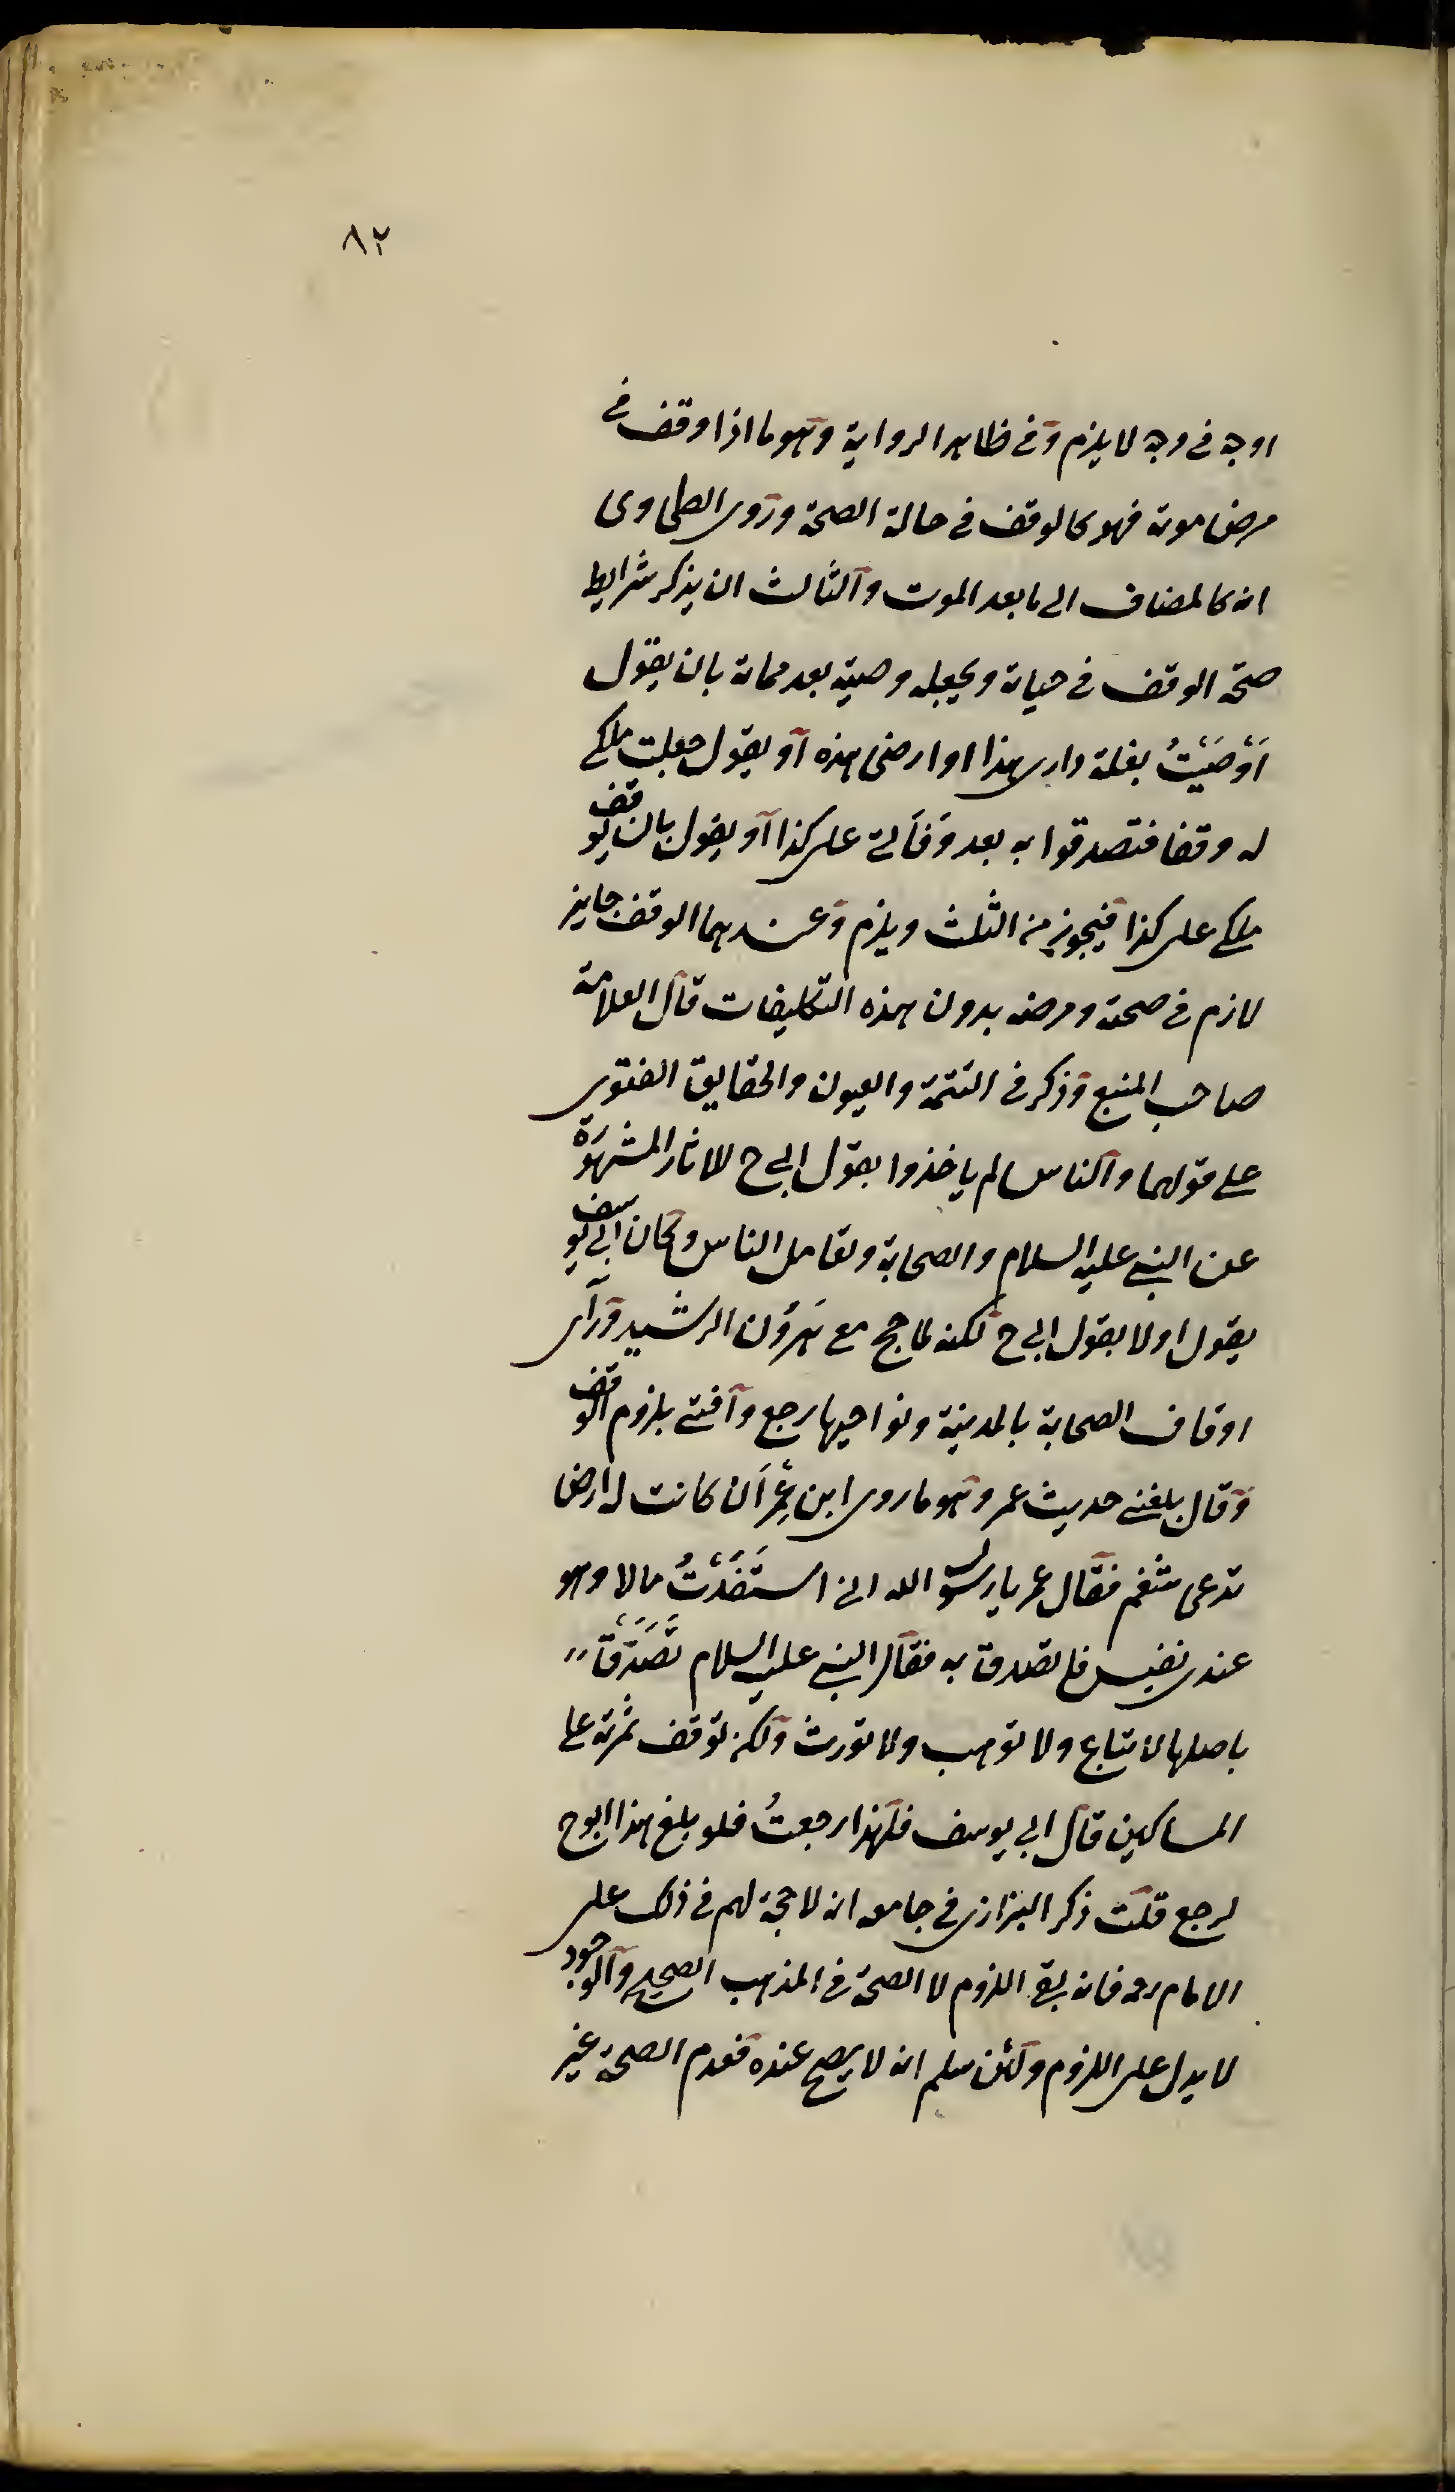 ٨٢
اوجه فى وجه لا يلزم وفى ظاهر الرواية وهو ما اذا وقف فى
مرض موته فهو كالوقف فى حالة الصحة وروى الطحاوى
انه كالمضاف الى ما بعد الموت والثالث ان يذكر شرايط
صحة الوقف فى حياته ويجعله وصية بعد مماته بان يقول
اَوْصَيْتُ بغلة دارى هذا او ارضى هذه او يقول جعلت ملكى
له وقفا فتصدقوا به بعد وَفَاتى على كذا او يقول بان يوقف
ملكى على كذا فيجوز من الثلث ويلزم وعندهما الوقف جايز
لازم فى صحته ومرضه بدون هذه التكليفات قال العلامة
صاحب المنبع وذكر فى التتمة والعيون والحقايق الفتوى
على قولهما والناس لم ياخذوا بقول ابى ح للاثار المشهورة
عن النبى عليه السلام والصحابة وتعامل الناس وكان ابى يوسف
يقول اولا بقول ابى ح لكنه لما حج مع هٰرُون الرشيد ورأى
اوقاف الصحابة بالمدينة ونواحيها رجع وافتى بلزوم الوقف
وقال بلغنى حديث عمر وهو ما روى ابن عُمر اَن كانت له ارض
تدعى ثمغ فقال عمر يا رسول الله انى استَفَدْتُ مالا وهو
عندى نفيس فاتصدق به فقال النبى عليه السلام تَصَدَّقْ
باصلها لا تباع ولا توهب ولا تورث ولكن توقف ثمرته على
المساكين قال ابى يوسف فلهذا رجعتُ فلو بلغ هذا ابو ح
لرجع قلت ذكر البزازى فى جامعه انه لا حجة لهم فى ذلك على
الامام رحمه فانه نفى اللزوم لا الصحة فى المذهب الصحيح والوجود
لا يدل على اللزوم ولئن سلم انه لا يصح عنده فعدم الصحة غير